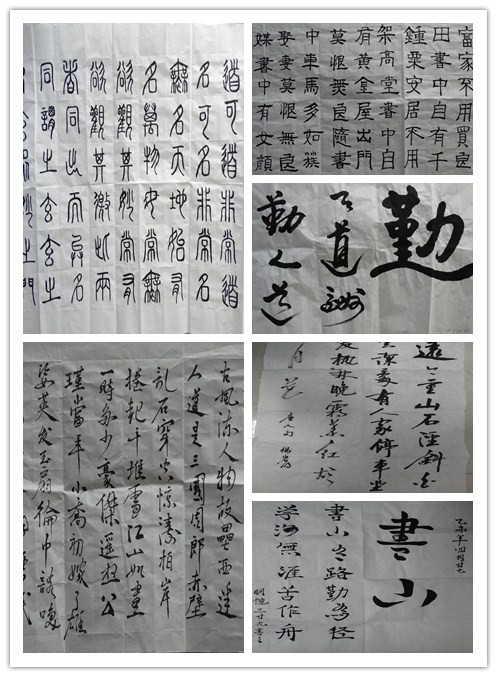 道可道非常道
名可名非常名
無名天地始有
名萬物母常無
欲觀其妙常有
欲觀其徼此兩
者同出而異名
同謂之玄玄之
玄眾妙之門
富家不用買良
田書中自有千
鍾粟安居不用
架高堂書中自
有黃金屋出門
莫恨無良隨書
中車馬多如簇
娶妻莫恨無良
媒書中有女顏
勤
天道酬
勤人道
古風流人物故壘西邊
人道是三國周郎赤壁
亂石穿空驚濤拍岸
捲起千堆雪江山如畫
一時多少豪傑遙想公
瑾當年小喬初嫁了雄
姿英發羽扇綸巾談笑
遠上寒山石徑斜白
深處有人家停車坐
楓林晚霜葉紅於
月花 唐人句
乙未年四月廿七
書山
書山有路勤為徑
學海無涯苦作舟